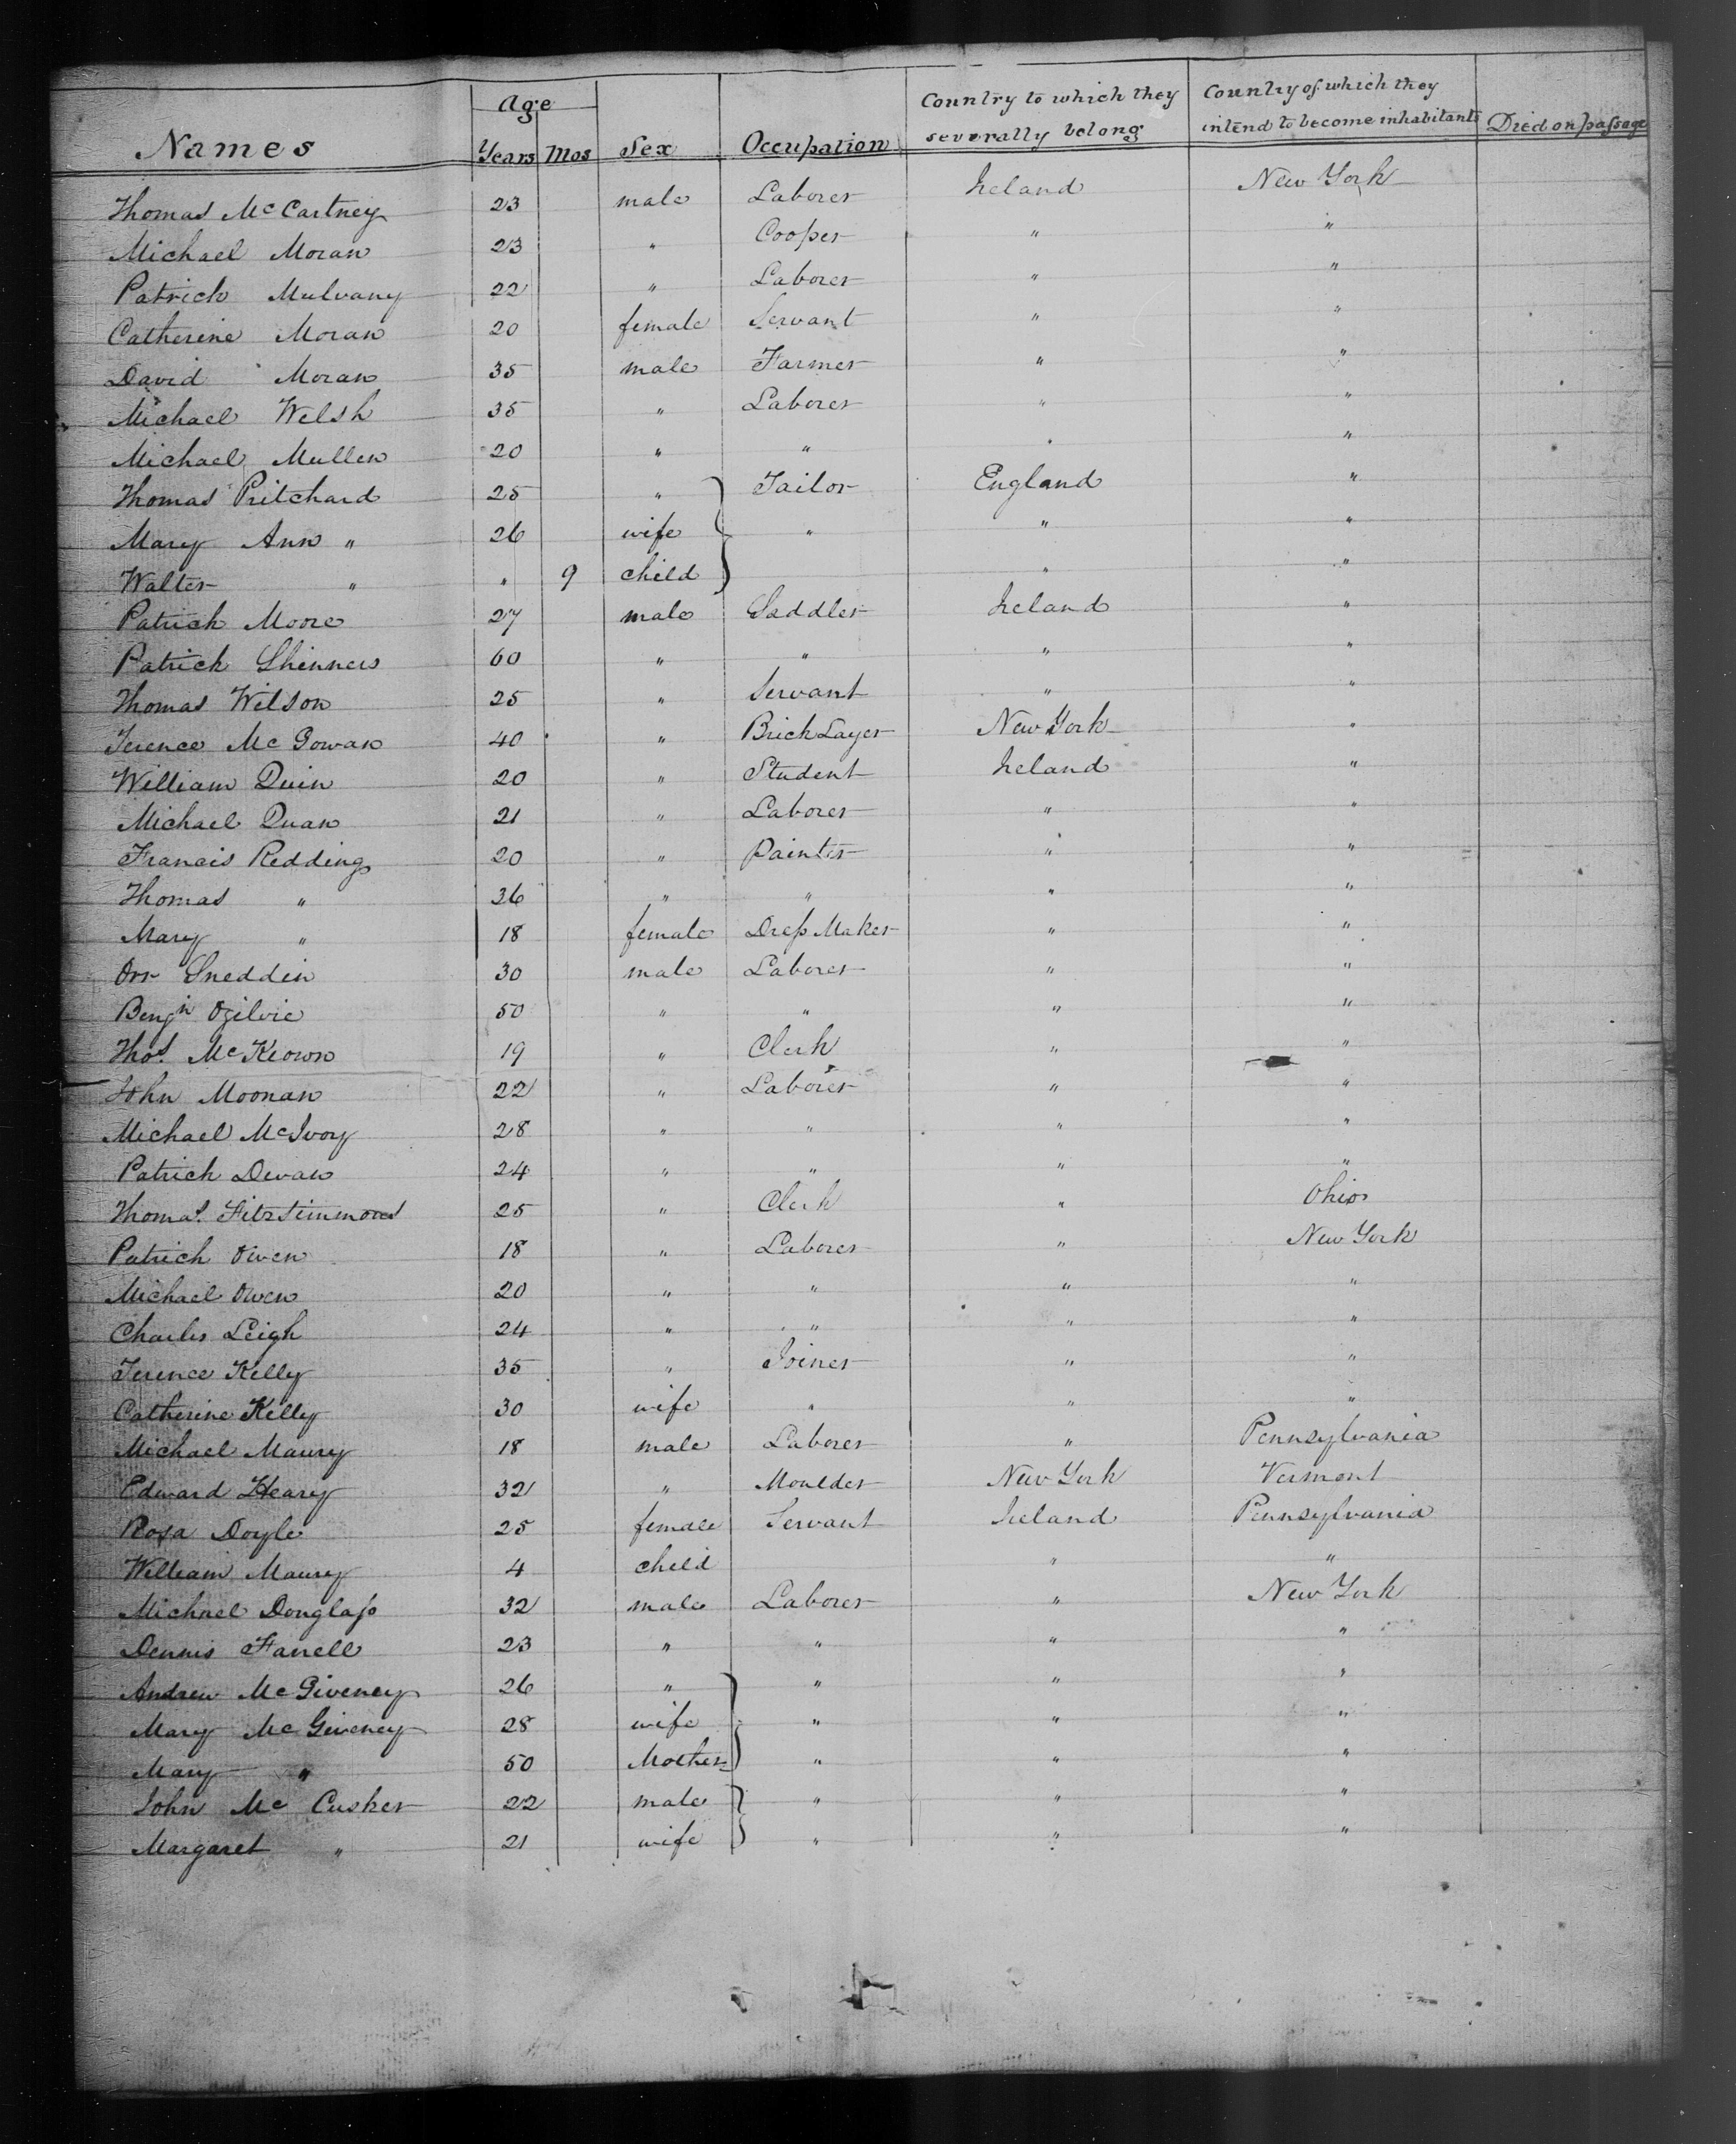 Names Age Years Mos Sex Occupation Country to which they severally belong Country of which they intend to become inhabitants Died on passage
Thomas McCartney 23 male Laborer Ireland New York
Michael Moran 23 " Cooper " "
Patrick Mulvany 22 " Laborer " "
Catherine Moran 20 female Servant " "
David Moran 35 male Farmer " "
Michael Welsh 35 " Laborer " "
Michael Mullen 20 " " " "
Thomas Pritchard 25 " Tailor England "
Mary Ann " 26 wife " " "
Walter " " 9 child " "
Patrick Moore 27 male Saddler Ireland "
Patrick Shinners 60 " " " "
Thomas Wilson 25 " Servant " "
Terence Mc Gowan 40 " Brick Layer New York "
William Quin 20 " Student Ireland "
Michael Quan 21 " Laborer " "
Francis Redding 20 " Painter " "
Thomas " 26 " " " "
Mary " 18 female Dress Maker " "
Orr Sneddin 30 male Laborer " "
Benjn Ogilvie 50 " " " "
Thos. McKeown 19 " Clerk " "
John Moonan 22 " Laborer " "
Michael McIvory 28 " " " "
Patrick Devan 24 " " " "
Thomas. Fitzsimmons 25 " Clerk " Ohio
Patrick Owen 18 " Laborer " New York
Michael Owen 20 " " " "
Charles Leigh 24 " " " "
Terence Kelly 35 " Joiner " "
Catherine Kelly 30 wife " " "
Michael Maury 18 male Laborer " Pennsylvania
Edward Hearey 32 " Moulder New York Vermont
Rosa Doyle 25 female Servant Ireland Pennsylvania
William Maury 4 child " "
Michael Douglass 32 male Laborer " New York
Dennis Farrell 23 " " " "
Andrew McGiveney 26 " " " "
Mary Mc Giveney 28 wife " " "
Mary " 50 Mother " " "
John Mc Cusker 22 male " " "
Margaret " 21 wife " " "